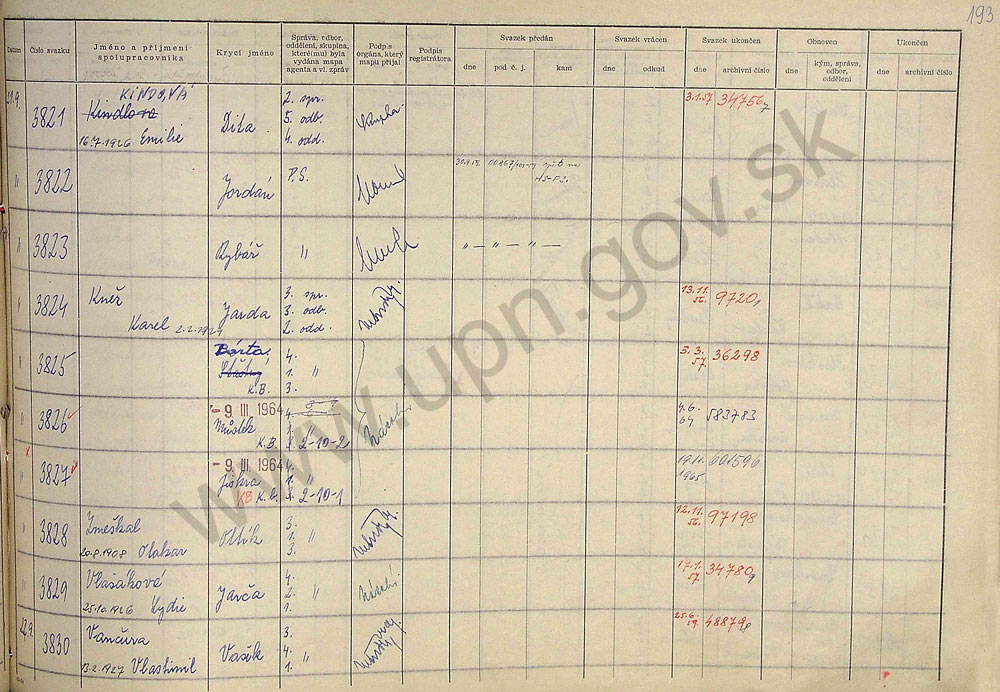 193
Datum
Číslo svazku
Jméno a příjmení
spolupracovníka
Krycí jméno
Správa, odbor,
oddělení, skupina,
které(mu) byla
vydána mapa
agenta a vl. zpráv
Podpis
orgána, který
mapu přijal
Podpis
registrátora
Svazek předán
dne
pod č. j.
kam
Svazek vrácen
dne
odkud
Svazek ukončen
dne
archivní číslo
Obnoven
dne
kým, správa,
odbor,
oddělení
Ukončen
dne
archivní číslo
3821
KINDLOVÁ
Kindlova
16.7.1926 Emilie
Dita
2. spr.
5. odb.
4. odd.
3.1.57 34756
3822
Jordán
P.S.
zpět na
HS-PS.
3823
Rybář
"
" — " — " —
3824
Kněž
Karel 2.2.1924
Jarda
3. spr.
3. odb.
2. odd.
13.11.
56. 9720
3825
Bárta
Šťastný
K.B.
4.
1. "
3.
5.3.
57. 36298
3826
- 9. III. 1964
Můstek
K.B.
2-10-2
4.6.
64 583783
3827
- 9. III. 1964
Jiskra
KB K.B.
2-10-1
19.11. 601596
1965
3828
Zmeškal
20.8.1908 Otakar
Ottík
3.
1. "
3.
12.11.
56. 97198
3829
Vlasáková
25.10.1926 Lydie
Jarča
4.
2. "
1.
17.1.
57 34780
22.9.
3830
Vančura
13.2.1927 Vlastimil
Vašík
3.
4. "
1.
25.6.
59. 48879
www.upn.gov.sk